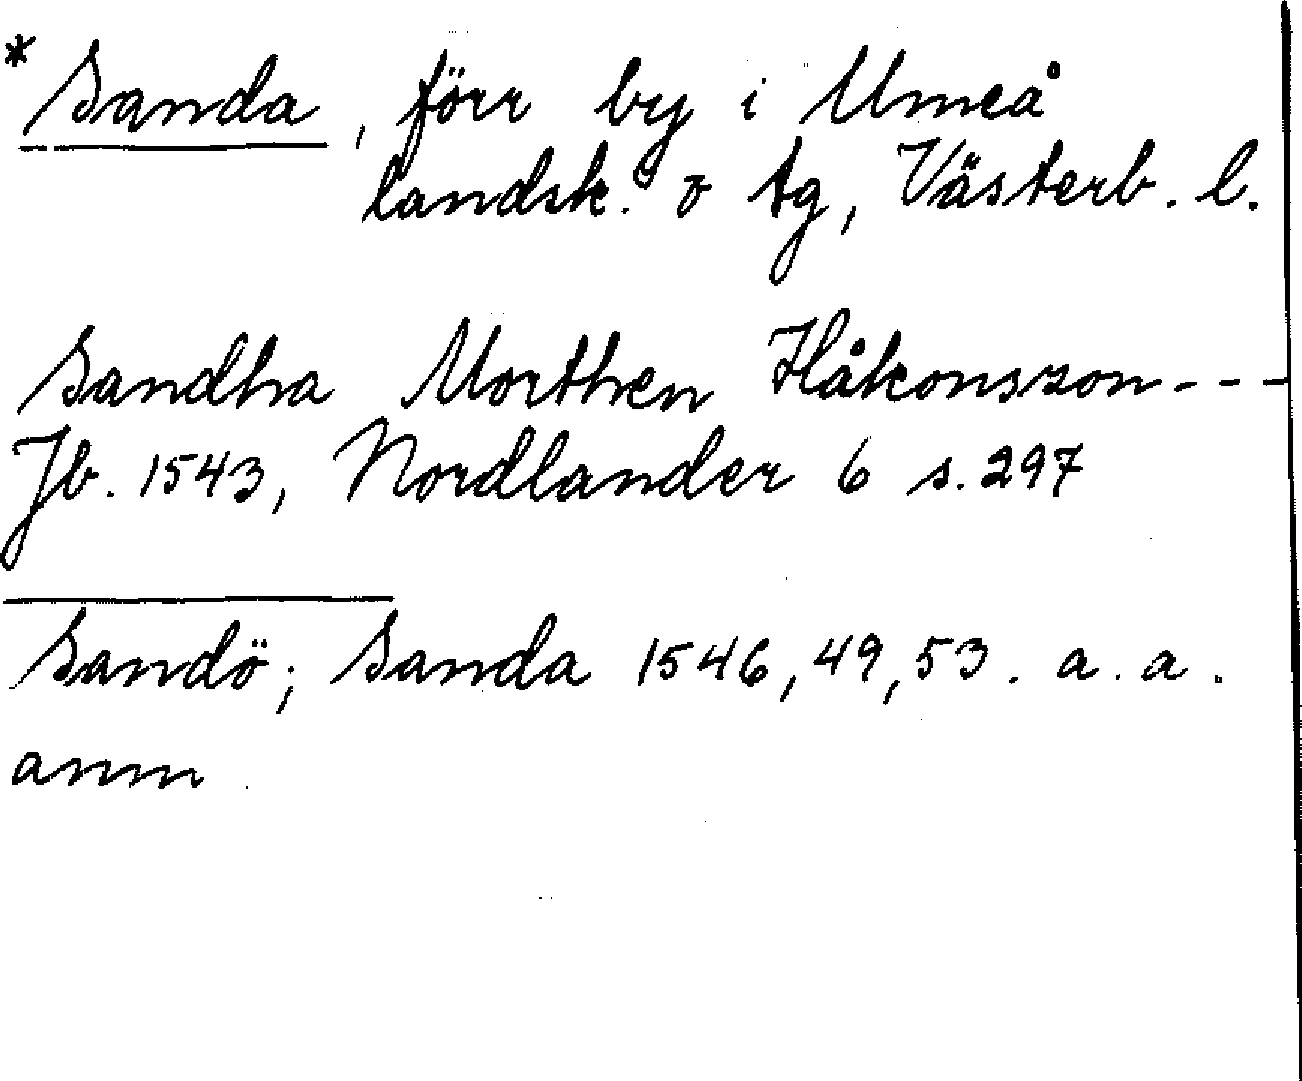 * Sanda, förr by i Umeå
landsk. o tg, Västerb. l.
Sandha Morthen Håkonszon - - -
Jb. 1543, Nordlander 6 s. 297
Sandö; Sanda 1546, 49, 53. a. a.
anm.